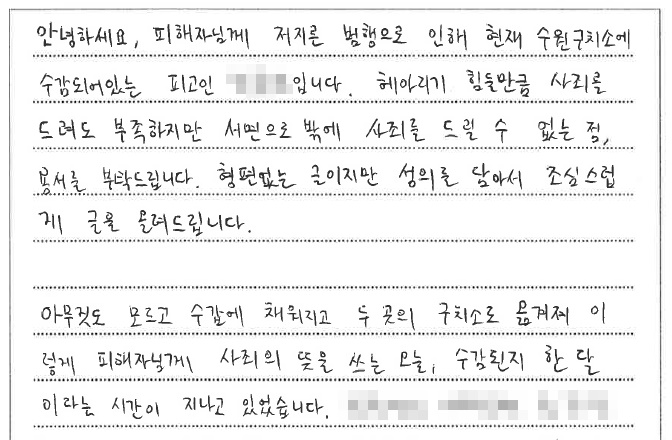 안녕하세요, 피해자님께 저지른 범행으로 인해 현재 수원구치소에
수감되어있는 피고인 입니다. 헤아리기 힘들만큼 사죄를
드려도 부족하지만 서면으로 밖에 사죄를 드릴 수 없는 점,
용서를 부탁드립니다. 형편없는 글이지만 성의를 담아서 조심스럽
게 글을 올려드립니다.
아무것도 모르고 수갑에 채워지고 두 곳의 구치소로 옮겨져 이
렇게 피해자님께 사죄의 뜻을 쓰는 오늘, 수감된지 한 달
이라는 시간이 지나고 있었습니다.